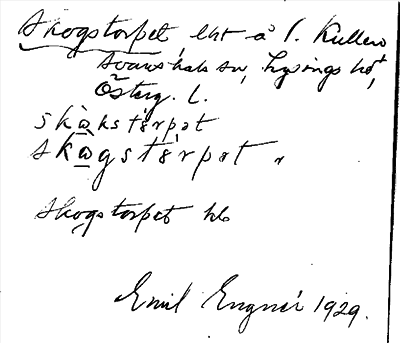 Skogstorpet, lht å f. Kullen
Svanshals sn, Lysings hd,
Österg. l.
skὰkstɛrpət
skὰgstɛrpət
Skogstorpet hb
Emil Engnér 1929.